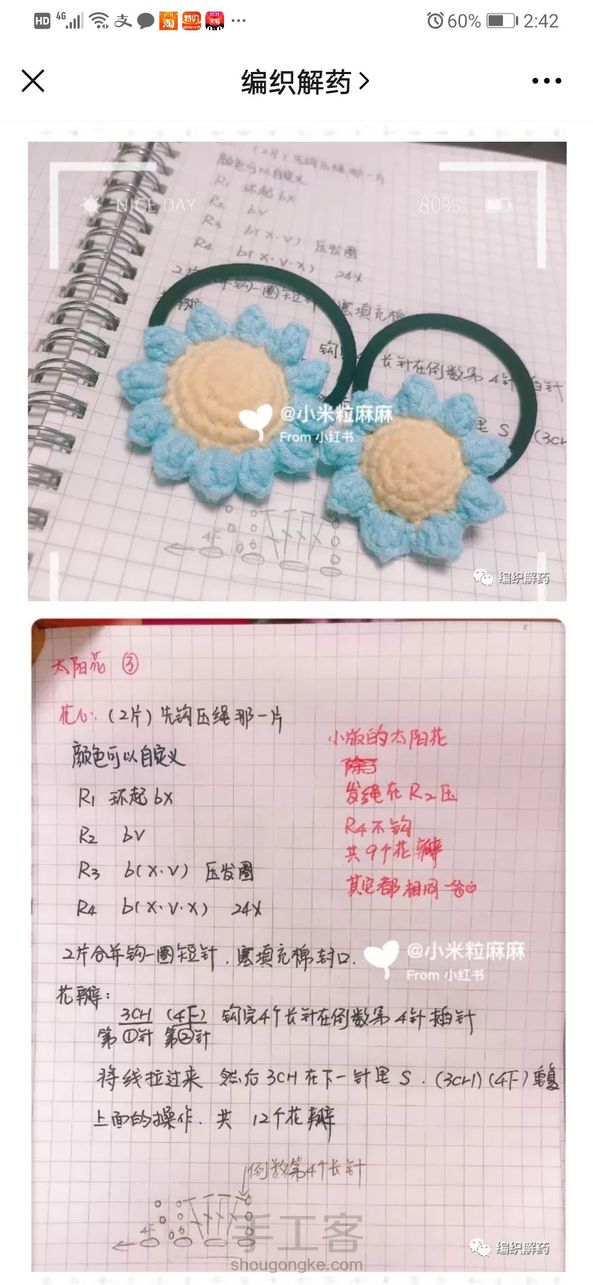 HD 4G 60% 2:42
编织解药
NICE DAY 80%
(2片)先钩压绳那一片
颜色可以自定义
R1 环起6X
R2 6V
R3 6(X·V) 压发圈
R4 6(X·V·X) 24X
长针在倒数第4针
@小米粒麻麻
From 小红书
编织解药
太阳花 ③
花心:(2片)先钩压绳那一片
颜色可以自定义
R1 环起6X
R2 6V
R3 6(X·V) 压发圈
R4 6(X·V·X) 24X
小版的太阳花
发绳在R2压
R4不钩
共9个花瓣
其它都相同
2片合并钩一圈短针.塞填充棉封口.
@小米粒麻麻
From 小红书
花瓣:
3CH (4F) 钩完4个长针在倒数第4针插针
第①针 第②针
将线拉过来 然后3CH在下一针里S.(3CH)(4F)重复
上面的操作.共12个花瓣
倒数第4个长针
4F
手工客
shougongke.com
编织解药